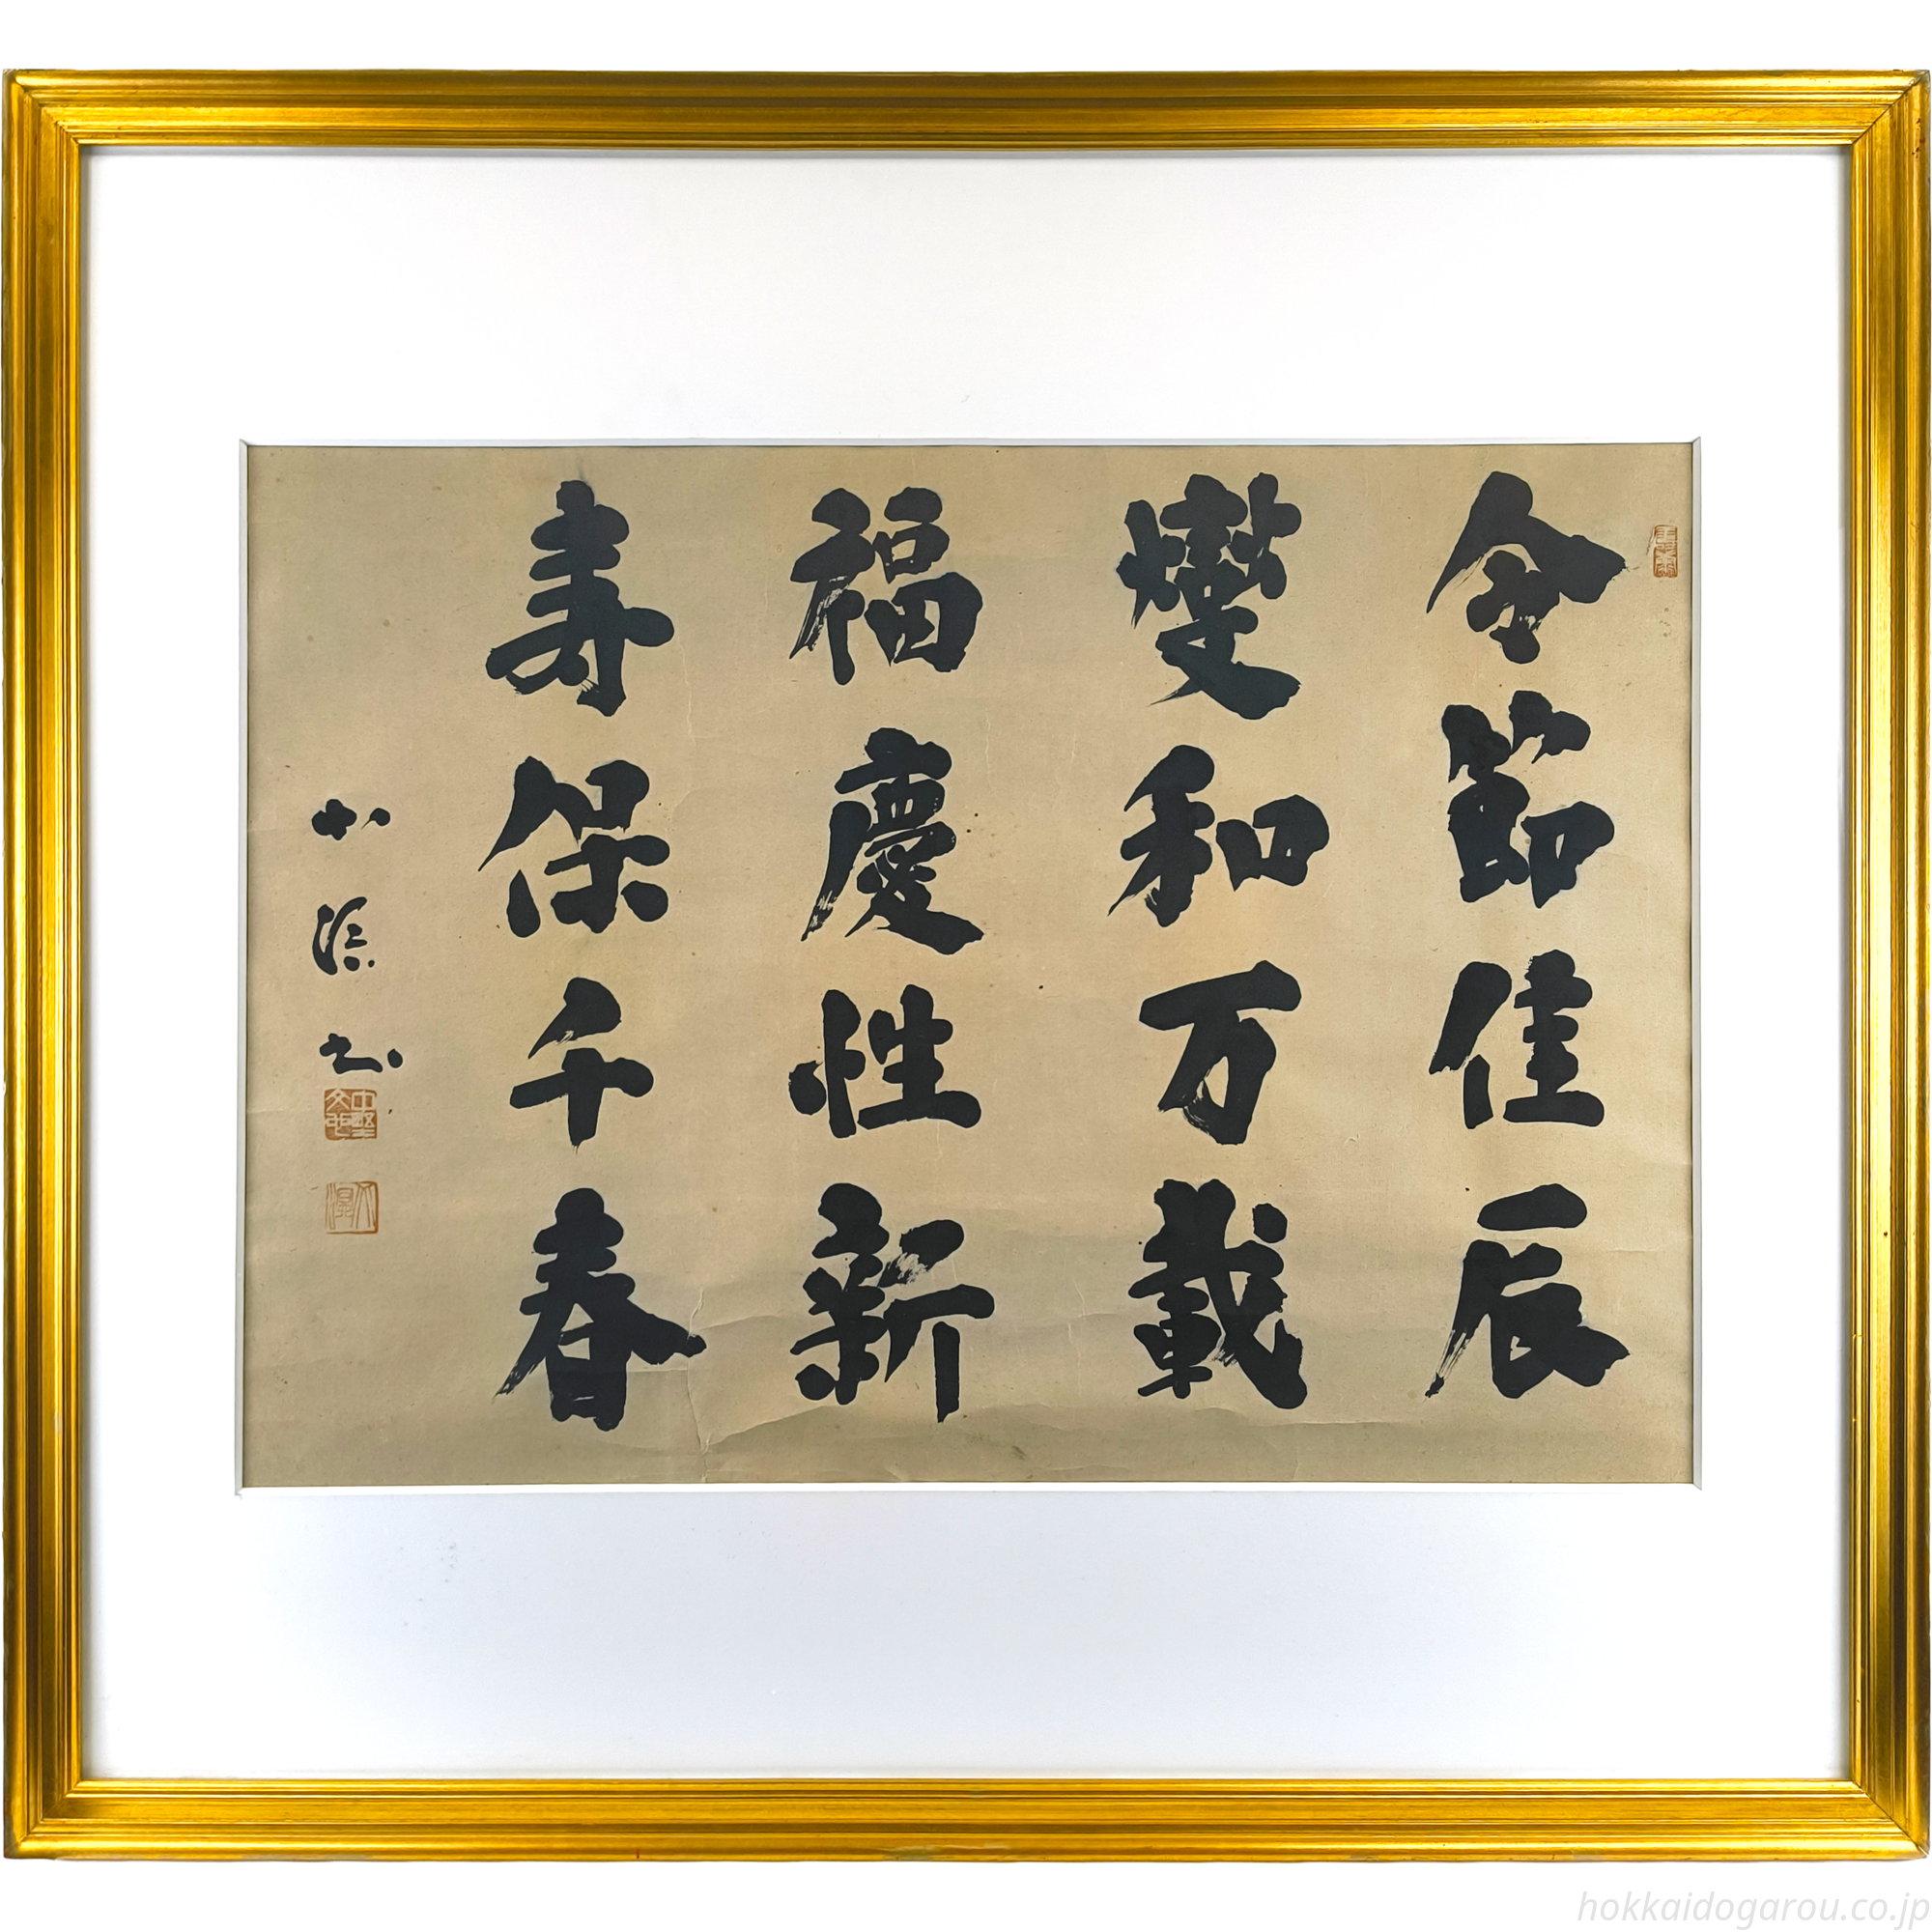 令節佳辰
燮和万載
福慶惟新
寿保千春
hokkaidogarou.co.jp